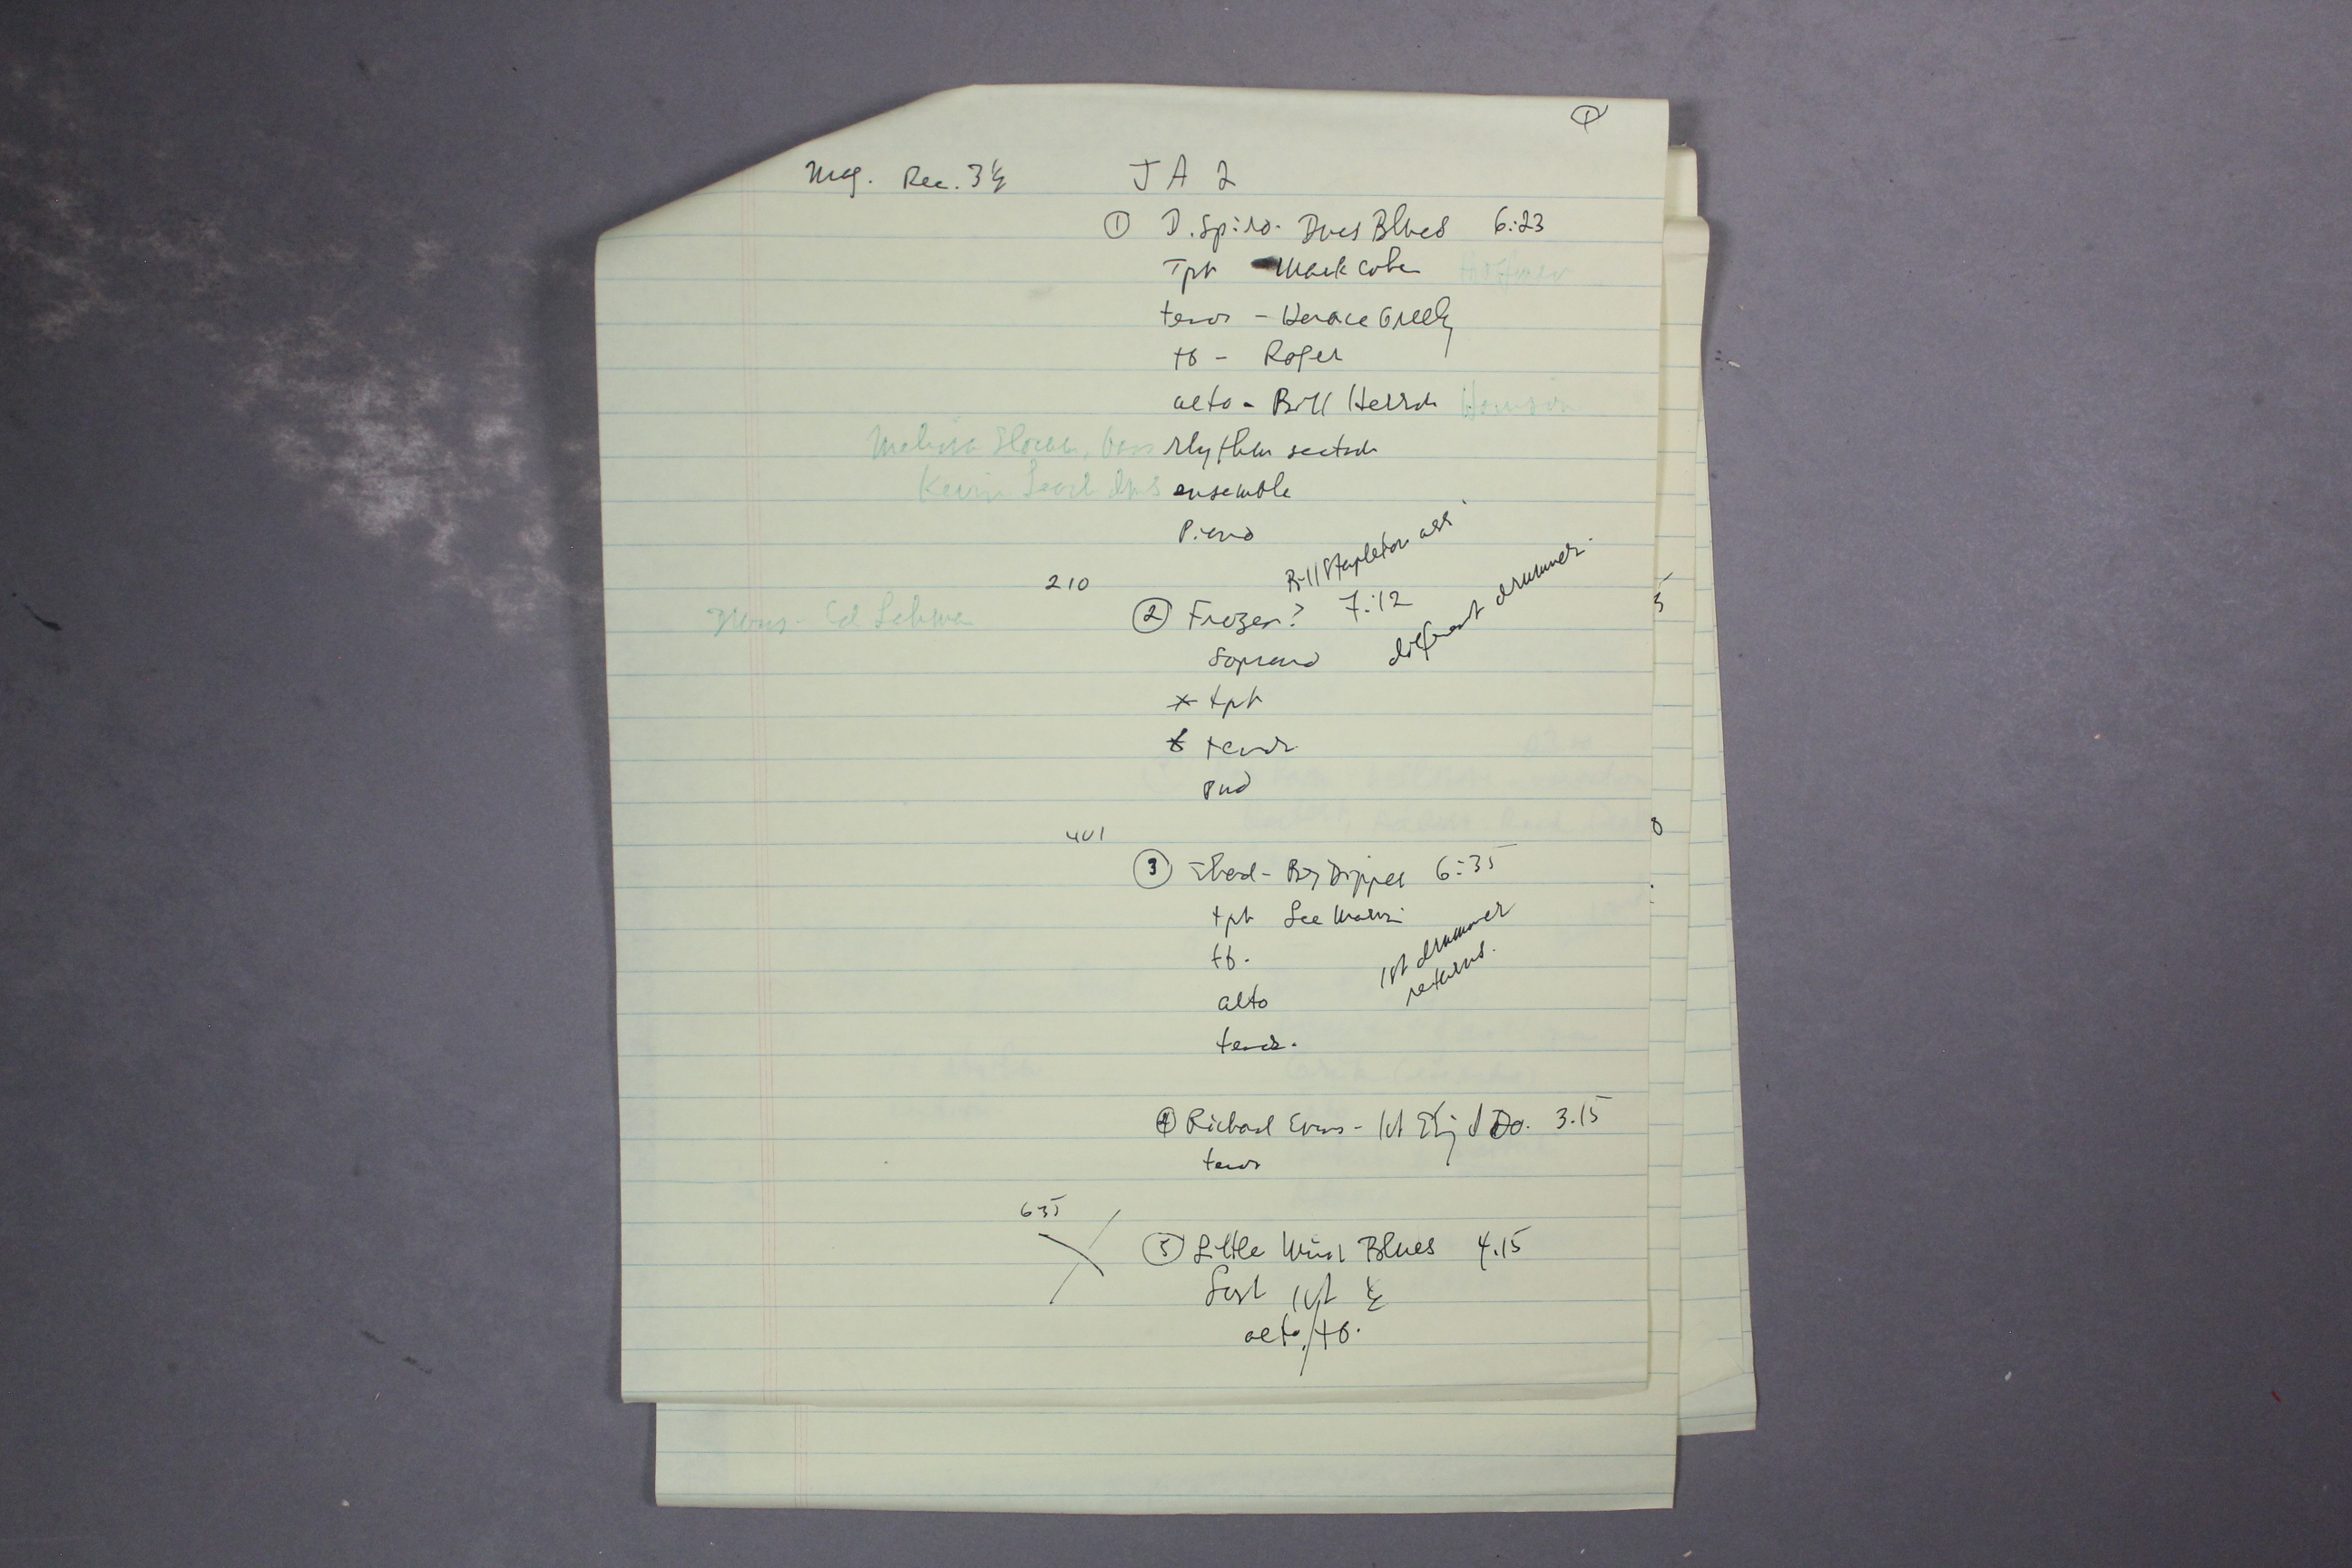 ①
Mag. Rec. 3½ J A 2
① D. Spiro - Dues Blues 6:23
Tpt - Mark Cohen Hoffman
tenor - Horace Greely
tb - Roger
alto - Bill Herron
Melissa Slocum, bass rhythm section
Kevin dms ensemble
Piano
Bill Stapleton arr.
210
② Frozen? 7:12
different drummer.
Ed
Soprano
x tpt
tenor
pno
401
③ Thad - Big Dipper 6:35
tpt Lee
tb.
1st drummer
returns.
alto
tenor.
④ Richard Evans - 1st Thing I Do. 3.15
tenor
635
⑤ Little Blues 4.15
Lost 1st ½
alto/tb.